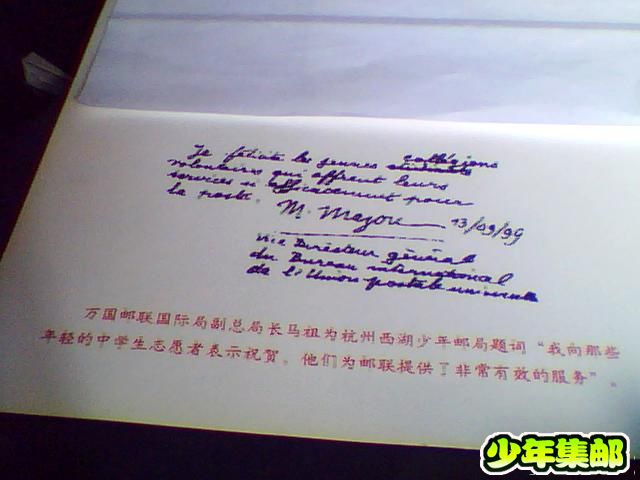 Je félicite les jeunes collégiens
volontaires qui offrent leurs
services si efficacement pour
la poste.
M. Mazou 13/09/99
Vice Directeur général
du Bureau international
de l'Union postale universelle
万国邮联国际局副总局长马祖为杭州西湖少年邮局题词“我向那些
年轻的中学生志愿者表示祝贺，他们为邮联提供了非常有效的服务”。
少年集邮